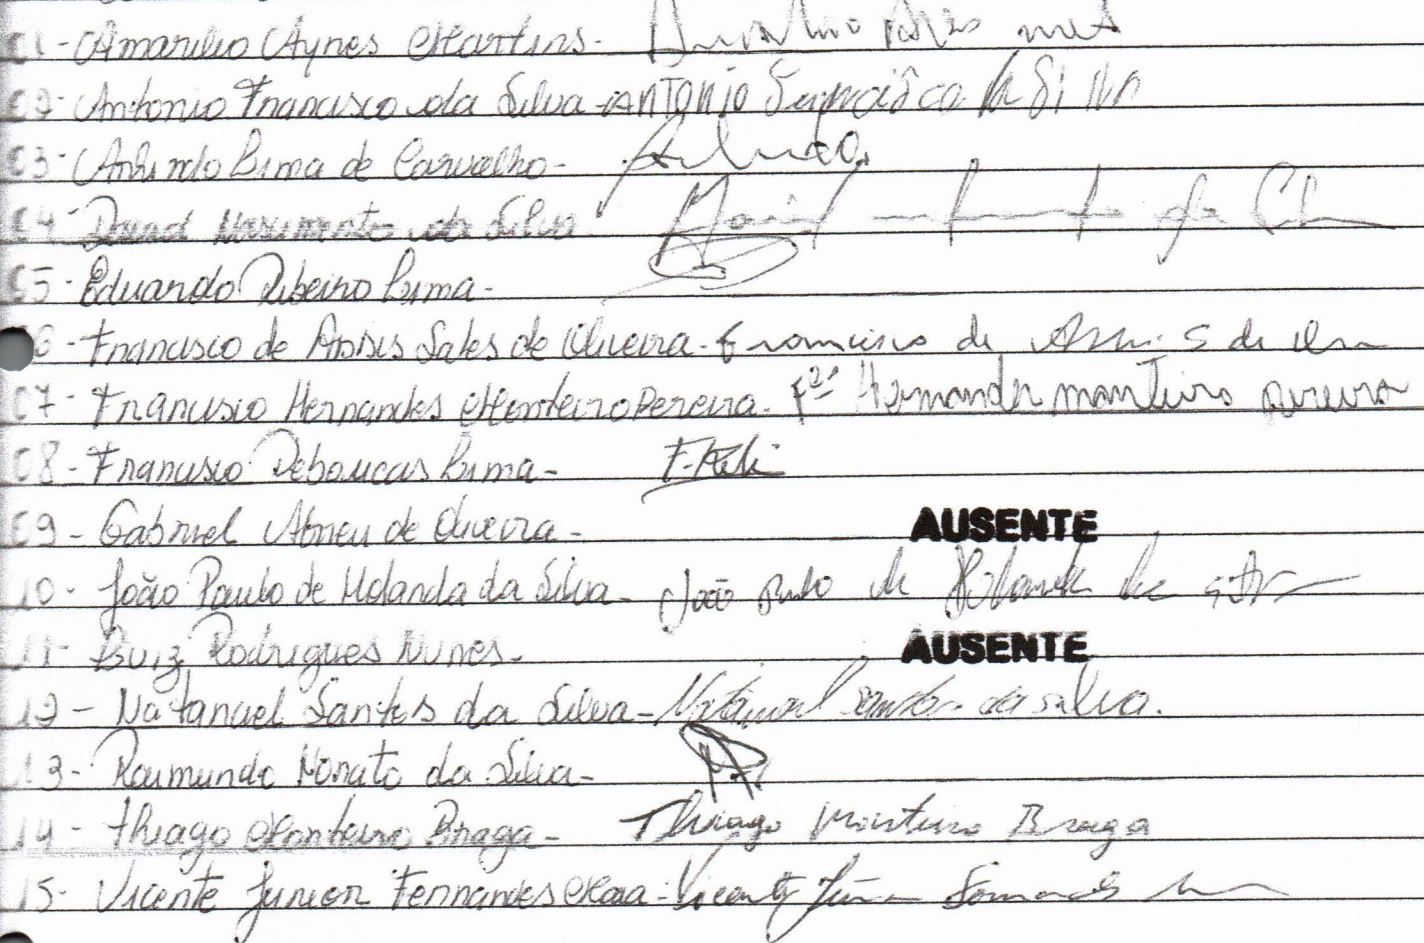 01- Amarilio Aynes Martins.
02- Antonio Francisco da Silva - ANTONIO Francisco da Silva
03- Arlindo Lima de Carvalho -
04- David Nascimento da Silva
05- Eduardo Ribeiro Lima -
06- Francisco de Assis Sales de Oliveira. Francisco de Assis S de
07- Francisco Hernandes Monteiro Pereira. Fco Hernandes monteiro pereira
08- Francisco Reboucas Lima -
09- Gabriel Abreu de Oliveira - AUSENTE
10- João Paulo de Holanda da Silva - João Paulo de Holanda da Silva
11- Luiz Rodrigues Nunes - AUSENTE
12- Natanael Santos da Silva - Natanael Santos da silva.
13- Raimundo Nonato da Silva -
14- Thiago Monteiro Braga - Thiago Monteiro Braga
15- Vicente Junior Fernandes Maia - Vicente Júnior Fernandes